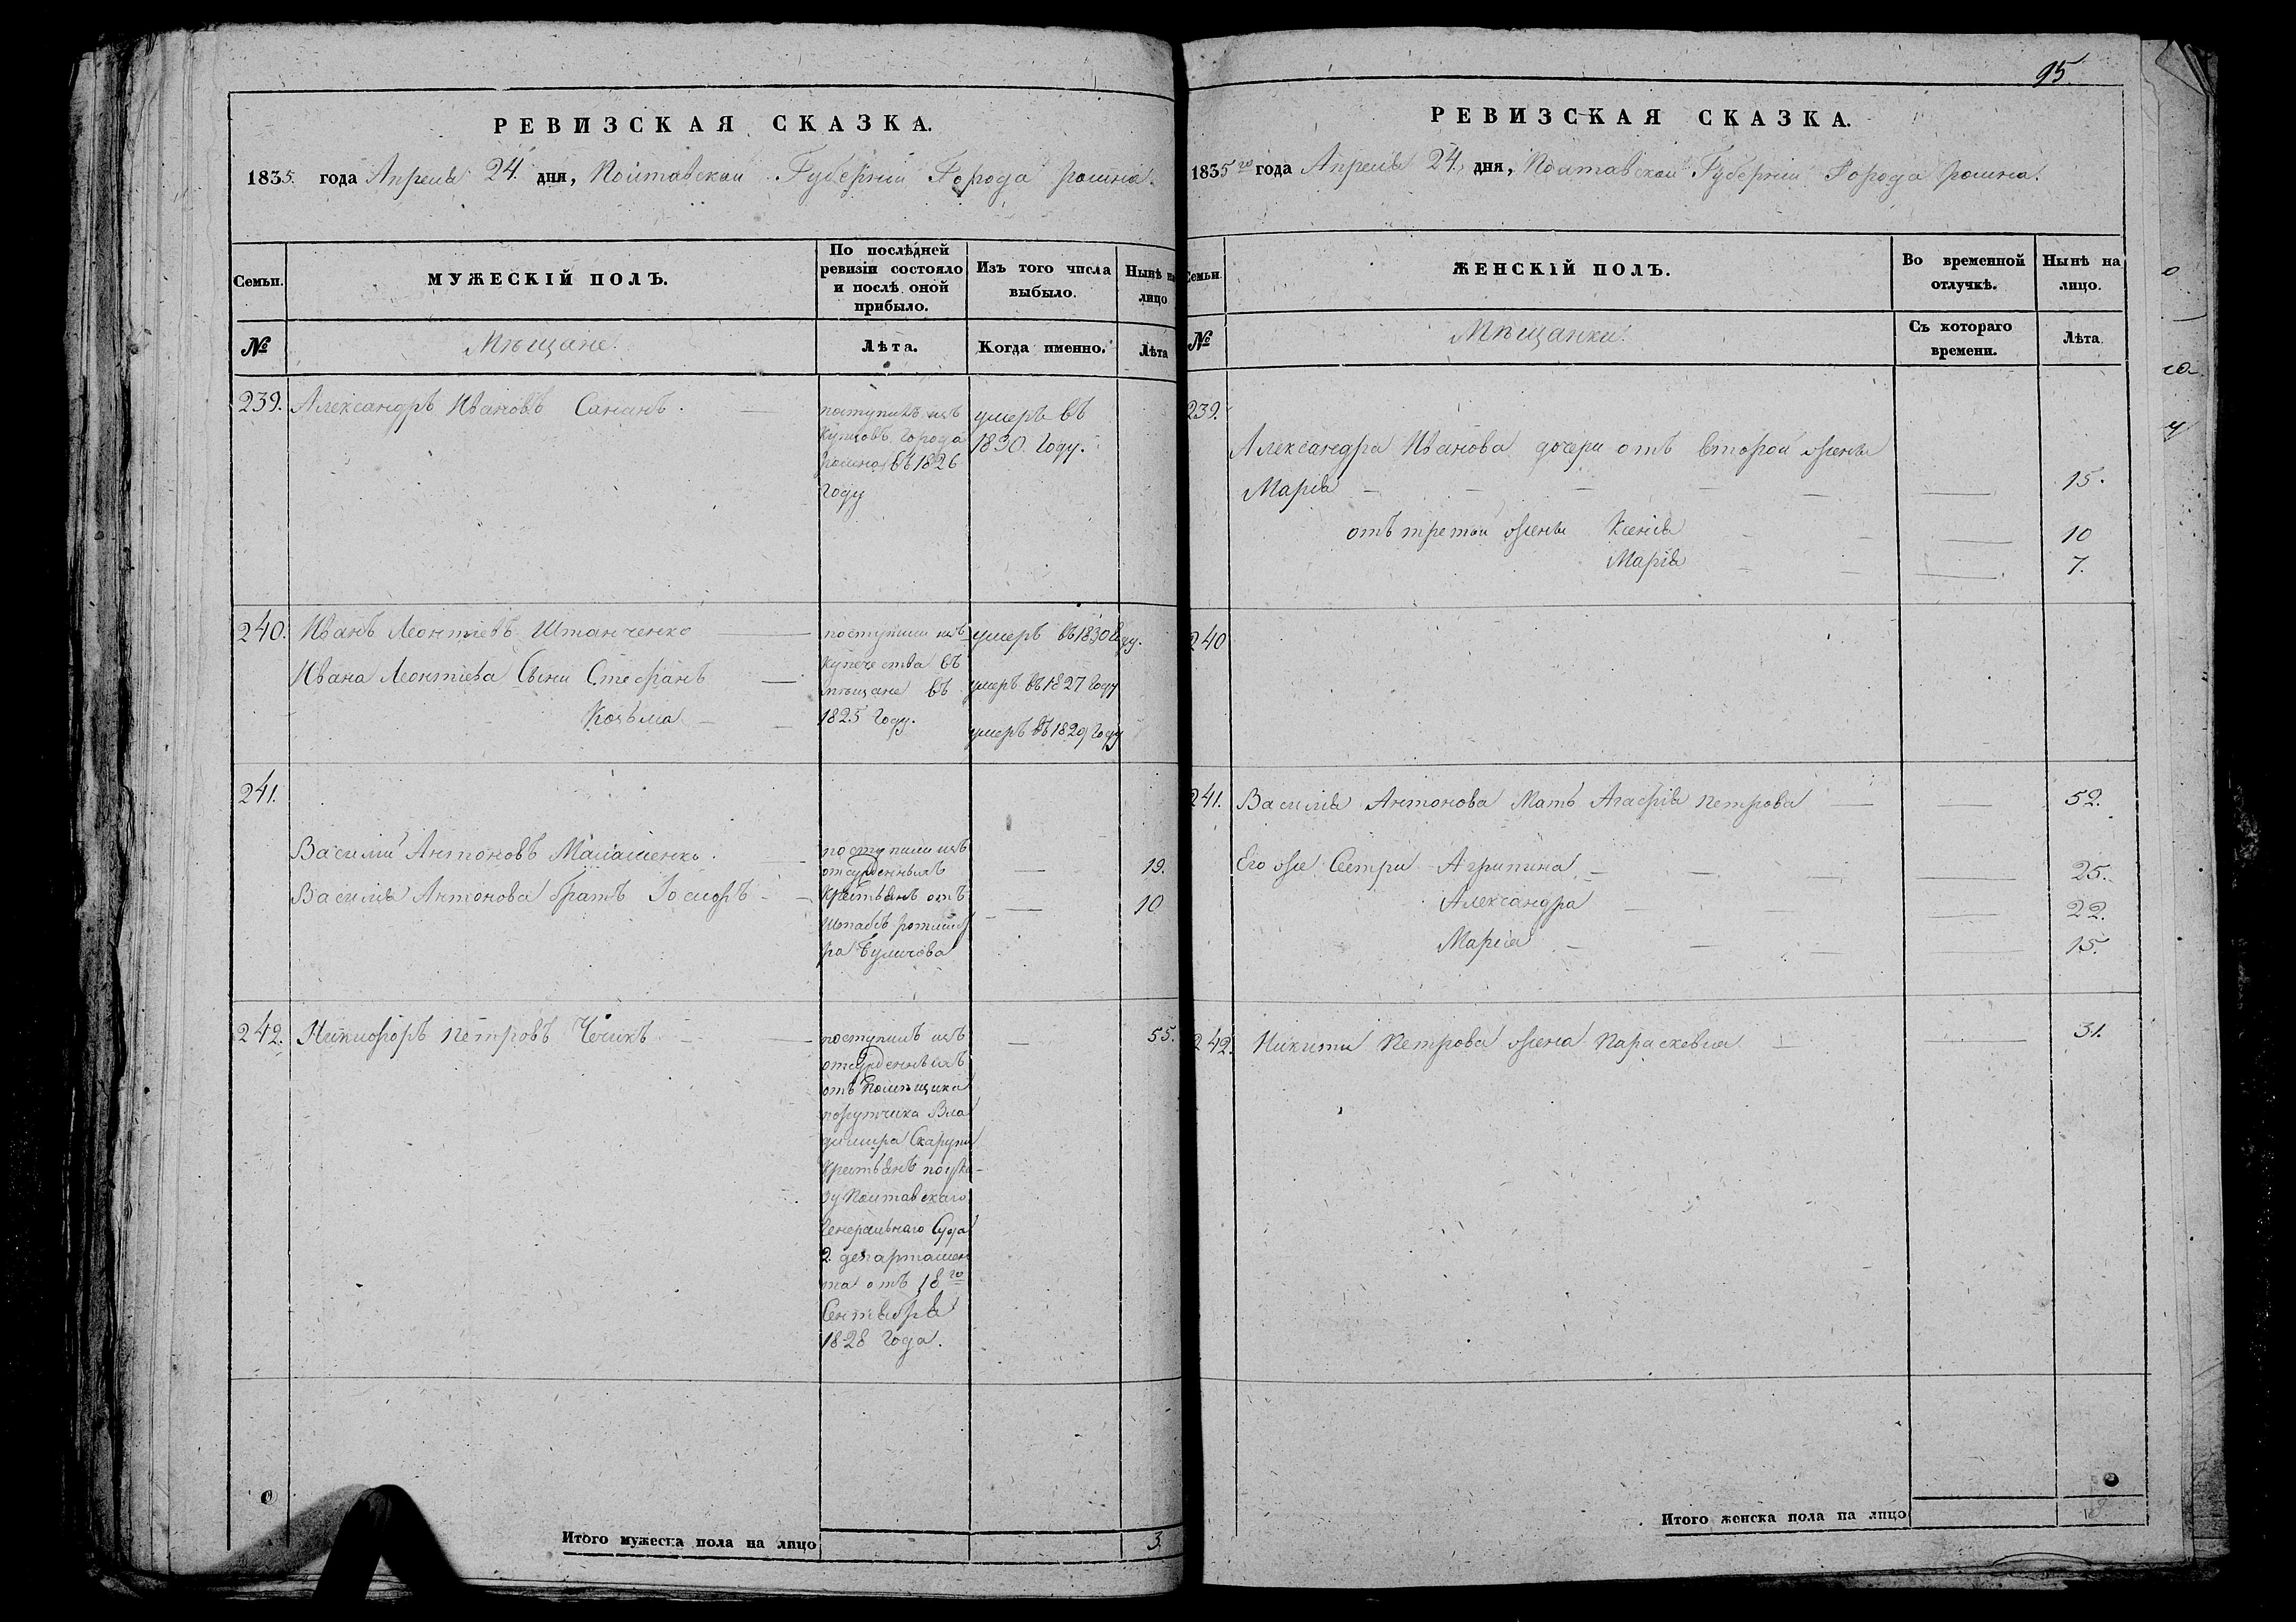 РЕВИЗСКАЯ СКАЗКА.
1835. года Апреля 24. дня, Полтавской Губернии Города Ромна.
Семьи.
МУЖЕСКІЙ ПОЛЪ.
По послѣдней
ревизіи состояло
и послѣ оной
прибыло.
Изъ того числа
выбыло.
Нынѣ на
лицо
№
Мѣщане.
Лѣта.
Когда именно.
Лѣта
239. Александръ Ивановъ
поступилъ изъ
купцовъ города
Ромна въ 1826
году
умеръ въ
1830 году.
240. Иванъ Леонтіевъ Штанченко
Ивана Леонтіева Сыни Стефанъ
Козьма
поступили изъ
купечества въ
мѣщане въ
1825 году.
умеръ въ 1830 году.
умеръ въ 1827 году
умеръ въ 1829 году
241.
Василий Антоновъ Малашенко.
Василія Антонова братъ Іосифъ
поступили изъ
отсужденныхъ
крестьянъ отъ
Штабъ ротмист
ра
19.
10
242. Никифоръ Петровъ Чечикъ
поступилъ изъ
отсужденныхъ
отъ помѣщика
порутчика Вла
димира
крестьянъ по ука-
зу Полтавскаго
Генеральнаго Суда
2. департамен
та отъ 18го
Сентября
1828 года.
55.
Итого мужеска пола на лицо
3.
95.
РЕВИЗСКАЯ СКАЗКА.
1835го года Апреля 24. дня, Полтавской Губерніи Города Ромна.
Семьи
ЖЕНСКІЙ ПОЛЪ.
Во временной
отлучкѣ.
Нынѣ на
лицо.
№
Мѣщанки.
Съ котораго
времени.
Лѣта
239.
Александра Иванова дочери отъ второй жены
Марія 15.
отъ третьи жены Ксенія 10
Марія 7.
240
241. Василія Антонова Мать Агафія Петрова 52.
Его же Сестри Агрипина 25.
Александра 22.
Марія 15.
242. Никити Петрова жена Параскевия 31.
Итого женска пола на лицо